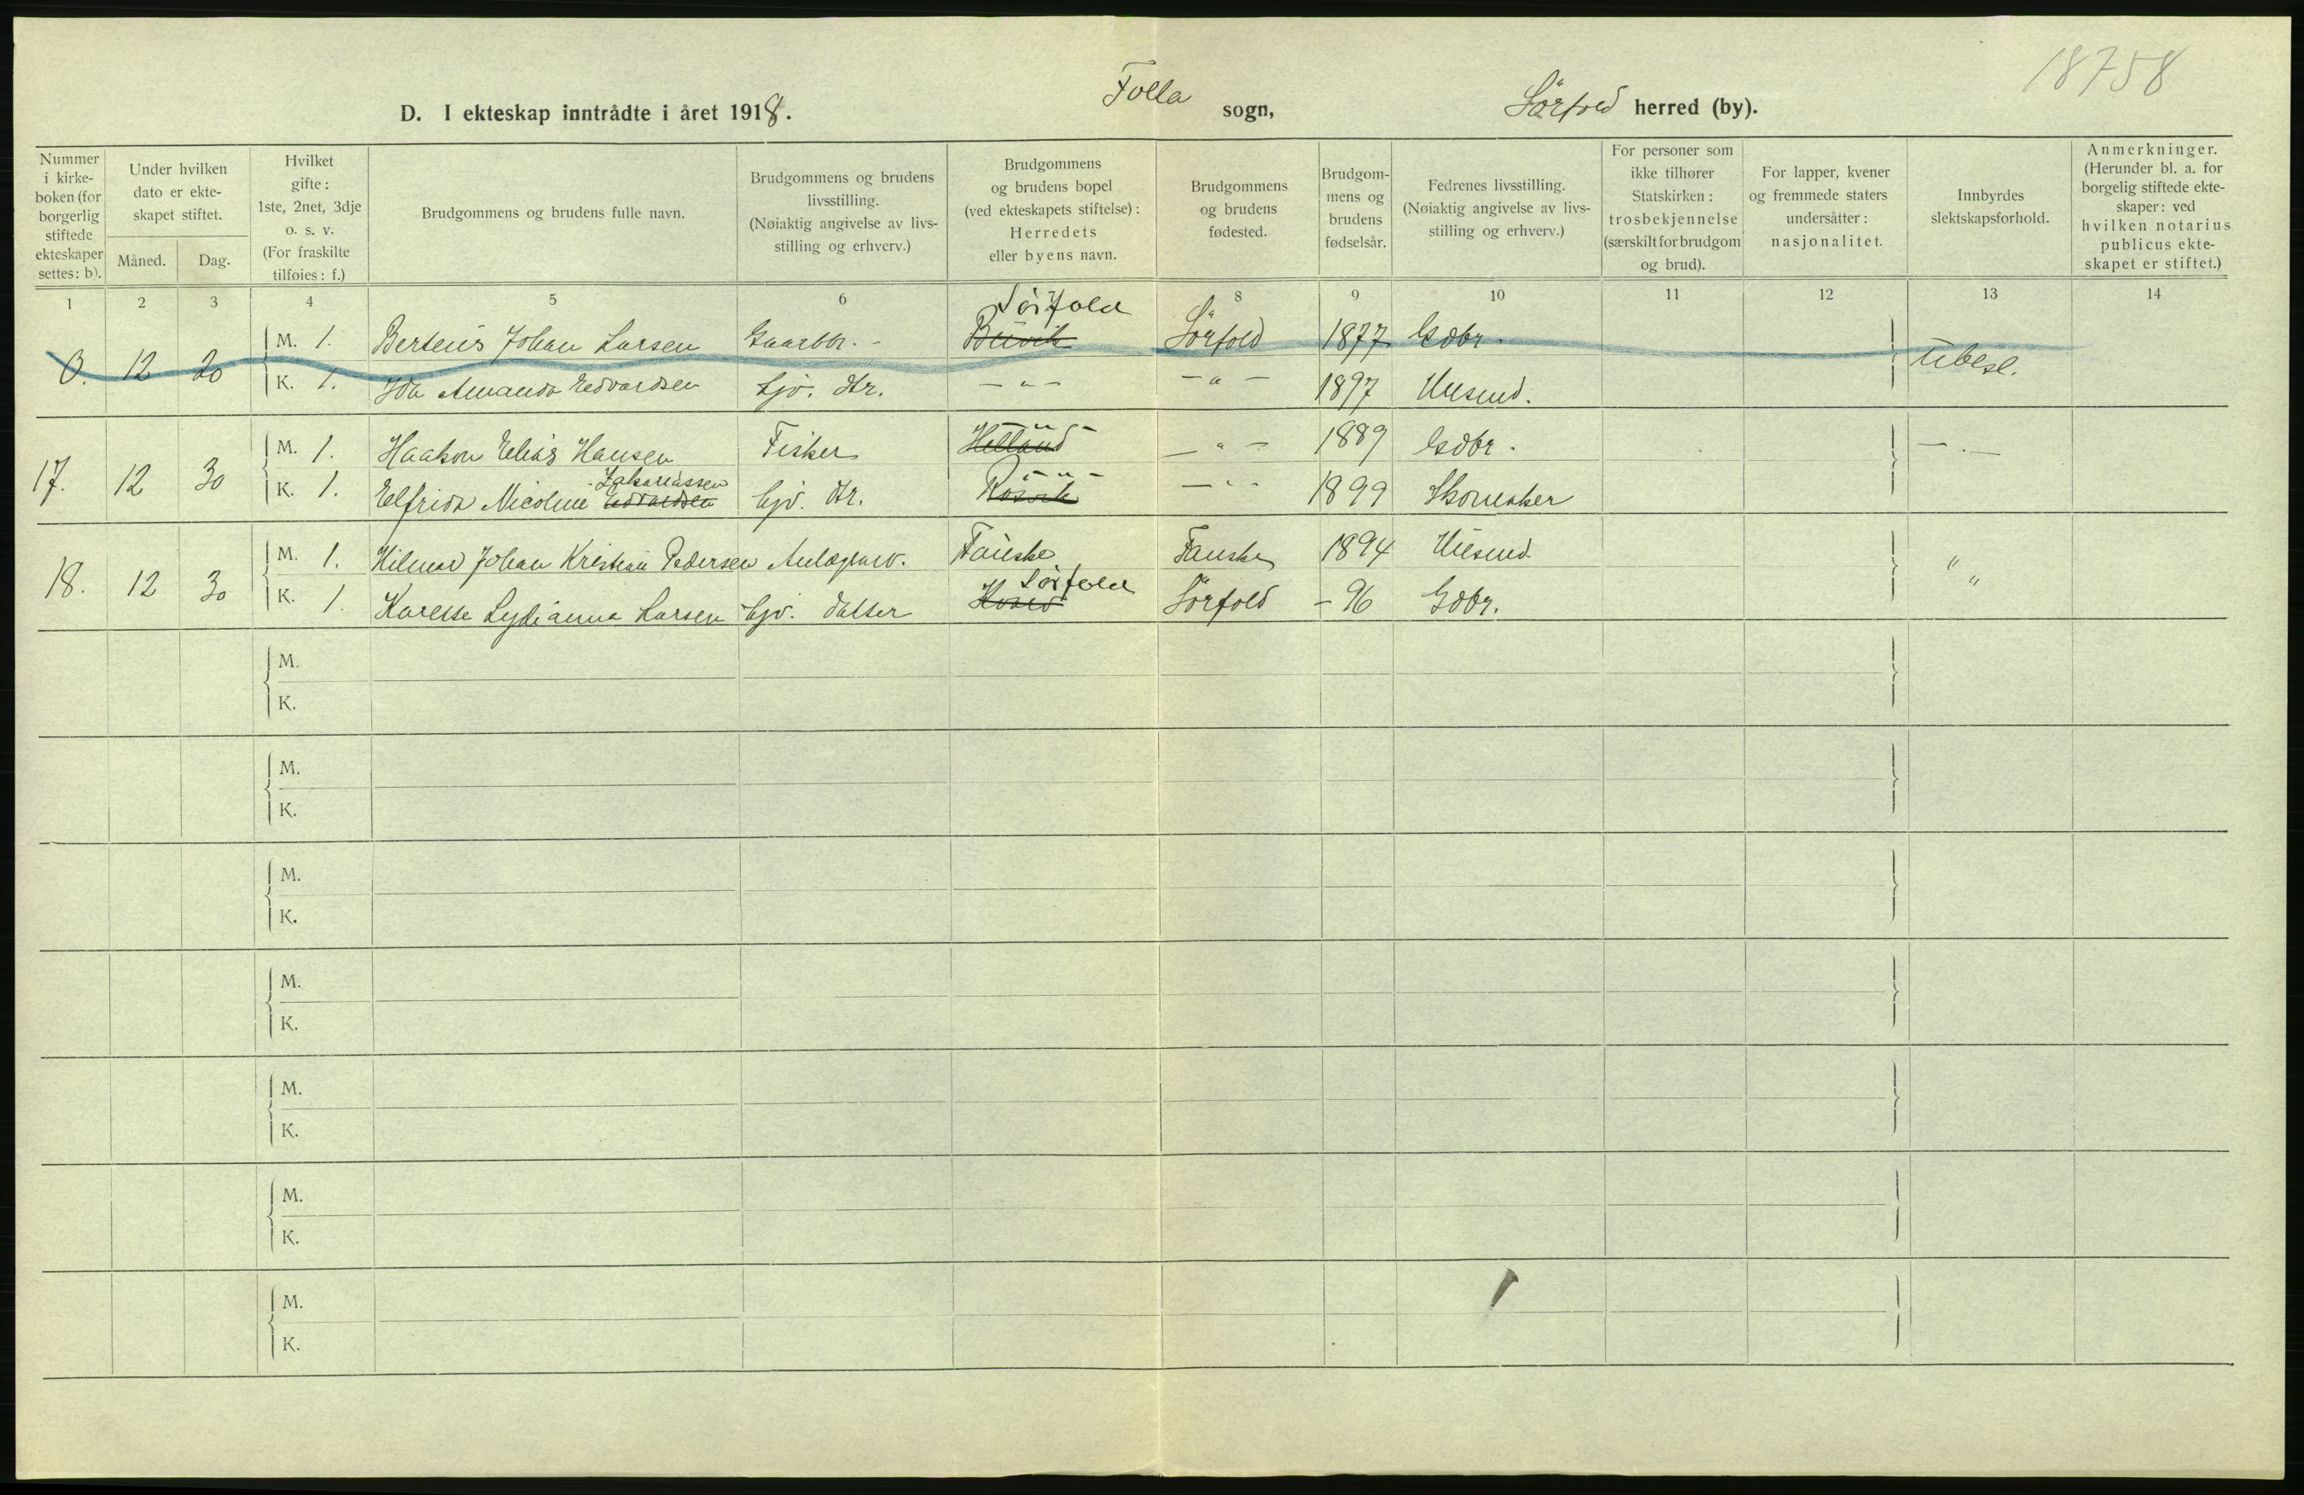 18758
D. I ekteskap inntrådte i året 1918. Folla sogn, Sörfold herred (by).
Nummer i kirke-boken (for borgerlig stiftede ekteskaper settes: b).
Under hvilken dato er ekte-skapet stiftet.
Måned. Dag.
Hvilket gifte: 1ste, 2net, 3dje o. s. v. (For fraskilte tilføies: f.)
Brudgommens og brudens fulle navn.
Brudgommens og brudens livsstilling. (Nøiaktig angivelse av livs-stilling og erhverv.)
Brudgommens og brudens bopel (ved ekteskapets stiftelse): Herredets eller byens navn.
Brudgommens og brudens fødested.
Brudgom-mens og brudens fødselsår.
Fedrenes livsstilling. (Nøiaktig angivelse av livs-stilling og erhverv.)
For personer som ikke tilhører Statskirken: trosbekjennelse (særskilt for brudgom og brud).
For lapper, kvener og fremmede staters undersåtter: nasjonalitet.
Innbyrdes slektskapsforhold.
Anmerkninger. (Herunder bl. a. for borgelig stiftede ekte-skaper: ved hvilken notarius publicus ekte-skapet er stiftet.)
1 2 3 4 5 6 8 9 10 11 12 13 14
Sörfold
0. 12 20 M. 1. Berteus Johan Larsen Gaarbr. - Sörfold 1877 Gdbr. Ubesl.
K. 1. Ida Amanda Edvardsen Ljv. dtr. - " - - " - 1897 Husmd.
- " -
17. 12 30 M. 1. Haakon Elias Hansen Fisker Helland - " - 1889 Gdbr. - . -
Zakariassen - " -
K. 1. Elfrida Nicoline Edvardsen Ljv. dtr. Røsvik - " - 1899 Skomaker
18. 12 30 M. 1. Hilmar Johan Kristian Pedersen Anlægsarb. Fauske Fauske 1894 Husmd. " "
Sörfold
K. 1. Karelse Lydianna Larsen Ljv. datter Sörfold - 96 Gdbr.
M.
K.
M.
K.
M.
K.
M.
K.
M.
K.
M.
K.
M.
K.